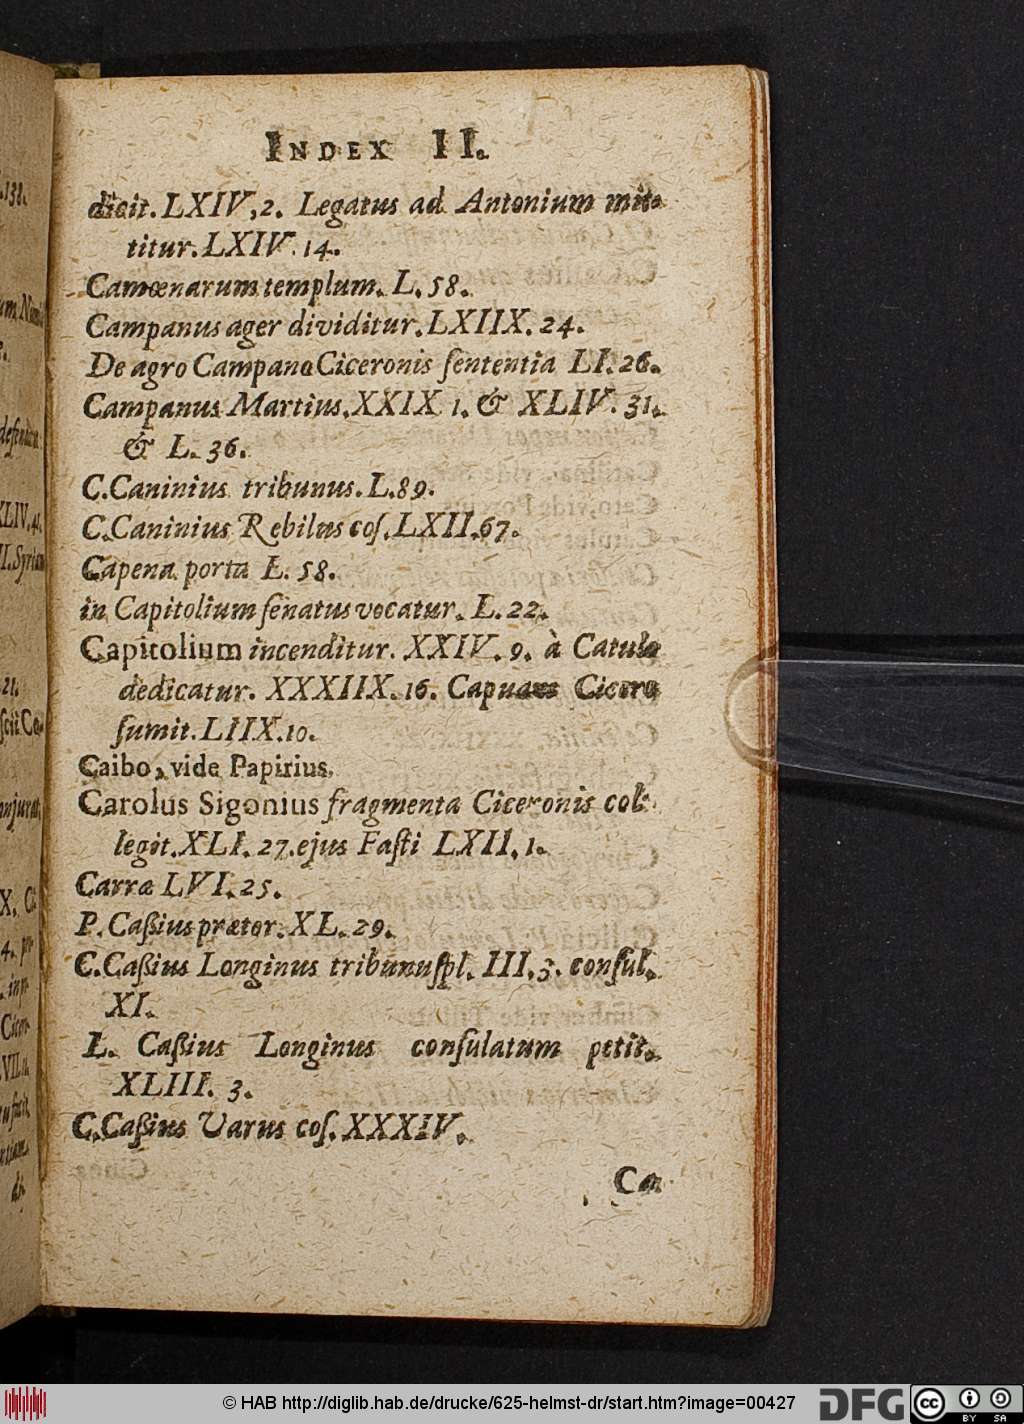 INDEX II.
dicit. LXIV, 2. Legatus ad Antonium mit-
titur. LXIV. 14.
Camœnarum templum. L. 58.
Campanus ager dividitur. LXIIX. 24.
De agro Campano Ciceronis ſententia LI. 26.
Campanus Martius. XXIX 1. & XLIV. 31.
& L. 36.
C. Caninius tribunus. L. 89.
C. Caninius Rebilus coſ. LXII. 67.
Capena porta L. 58.
in Capitolium ſenatus vocatur. L. 22.
Capitolium incenditur. XXIV. 9. à Catulo
dedicatur. XXXIIX. 16. Capuam Cicero
ſumit. LIIX. 10.
Caibo, vide Papirius.
Carolus Sigonius fragmenta Ciceronis col-
legit. XLI. 27. ejus Faſti LXII, 1.
Carræ LVI. 25.
P. Caßius prætor. XL. 29.
C. Caßius Longinus tribunuſpl. III. 3. conſul.
XI.
L. Caßius Longinus conſulatum petit.
XLIII. 3.
C. Caßius Varus coſ. XXXIV.
Ca
© HAB http://diglib.hab.de/drucke/625-helmst-dr/start.htm?image=00427
DFG
cc
BY SA